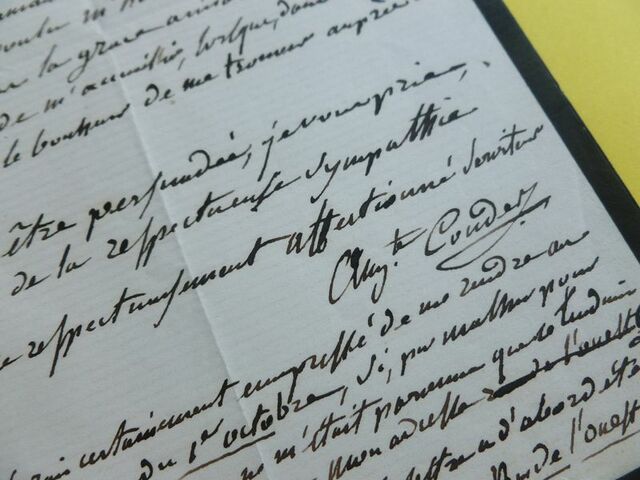 la grace
de m'accueillir, lorsque, dans
le bonheur de me trouver auprès
être persuadée, je vous prie,
de la respectueuse sympathie
respectueusement affectionné serviteur
Aug.te Couder
certainement empressé de me rendre au
du 1er octobre, si, par malheur pour
ne m'était parvenue que le lendemain
mon adresse de l'ouest
d'abord été
Rue de l'ouest